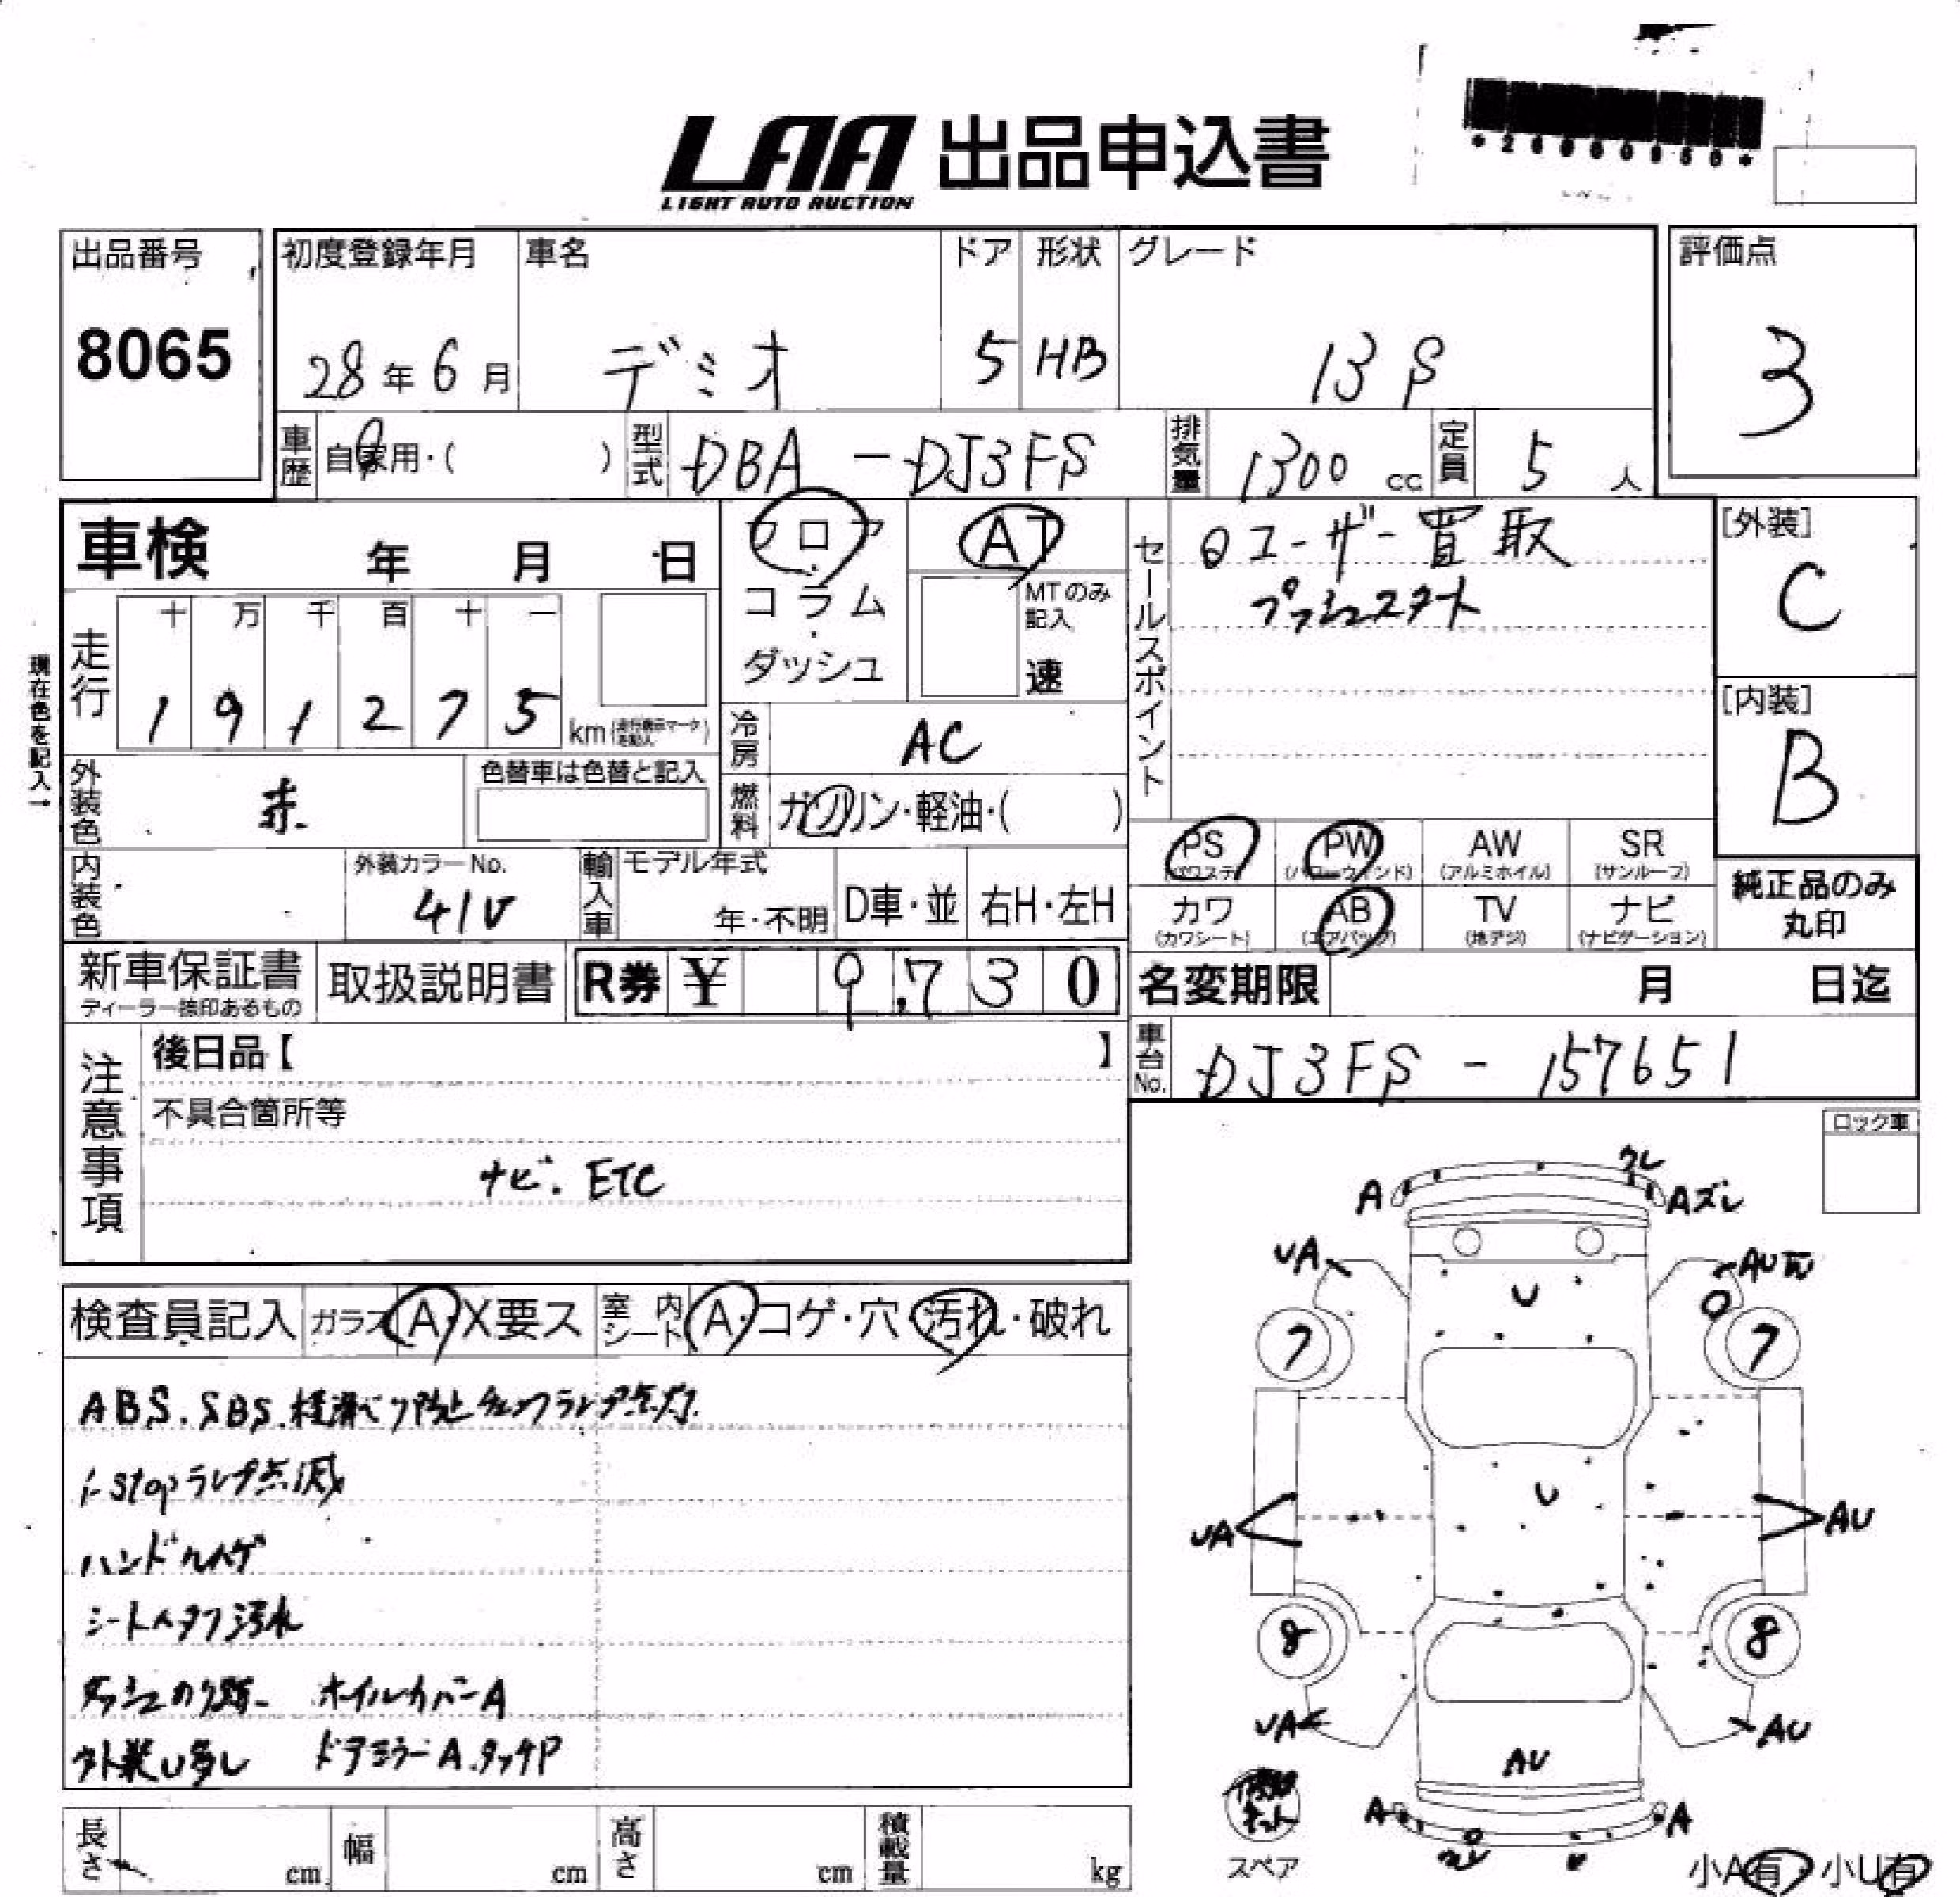 LAA 出品申込書
LIGHT AUTO AUCTION
出品番号
8065
初度登録年月
28年6月
車名
デミオ
ドア
5
形状
HB
グレード
13S
評価点
3
車歴 自家用・( )
型式 DBA-DJ3FS
排気量 1300 cc
定員 5 人
車検 年 月 日
フロア
・
コラム
・
ダッシュ
AT
MTのみ
記入
速
セールスポイント
ユーザー買取
プッシュスタート
[外装]
C
[内装]
B
現在色を記入→
走行
十 万 千 百 十 一
1 9 1 2 7 5
km (走行表示マークを記入)
冷房 AC
外装色 赤
色替車は色替と記入
燃料 ガソリン・軽油・( )
内装色
外装カラーNo.
41V
輸入車
モデル年式
年・不明
D車・並
右H・左H
PS
(パワステ)
PW
(パワーウインド)
AW
(アルミホイル)
SR
(サンルーフ)
カワ
(カワシート)
AB
(エアバッグ)
TV
(地デジ)
ナビ
(ナビゲーション)
純正品のみ
丸印
新車保証書
ディーラー捺印あるもの
取扱説明書
R券 ¥ 9,730
名変期限 月 日迄
車台No. DJ3FS-157651
注意事項
後日品【 】
不具合箇所等
ナビ.ETC
ロック車
検査員記入
ガラス A・X要ス
室内シート A・コゲ・穴・汚れ・破れ
ABS.SBS.横滑り防止チェックランプ点灯
i-stopランプ点滅
ハンドルハゲ
シート 汚れ
ダッシュのり跡 ホイルカバーA
外装U多し ドアミラーA.タッチP
A
Aズレ
UA
AU
U
7
7
U
UA
AU
8
8
UA
AU
AU
A
A
スペア
小A有・小U有
長さ cm
幅 cm
高さ cm
積載量 kg